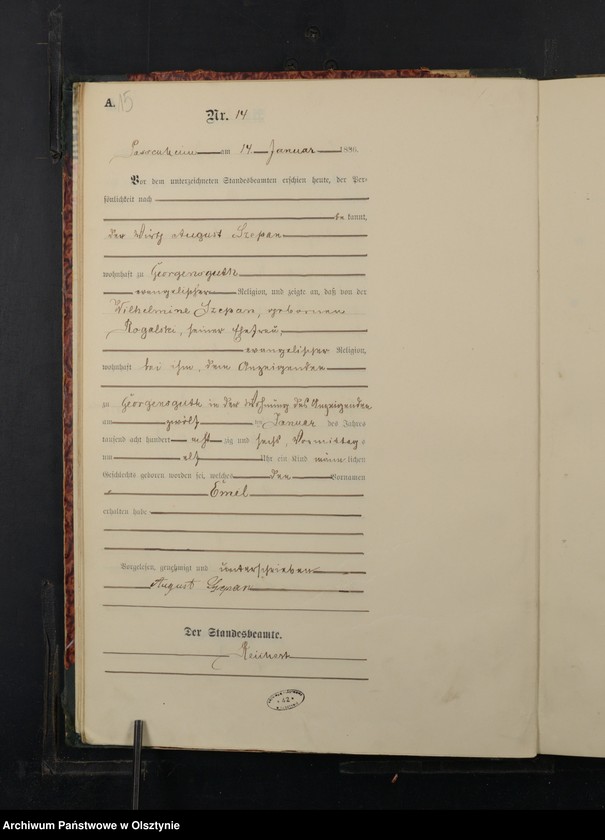 A. 15
Nr. 14
am 14 Januar 1886.
Vor dem unterzeichneten Standesbeamten erschien heute, der Per-
sönlichkeit nach
be kannt,
der Wirth August Szepan
wohnhaft zu Georgensguth
evangelischer Religion, und zeigte an, daß von der
Wilhelmine Szepan, geborenen
Rogalski, seiner Ehefrau,
evangelischer Religion,
wohnhaft bei ihm, dem Anzeigenden
zu Georgensguth in der Wohnung des Anzeigenden
am zwölf ten Januar des Jahres
tausend acht hundert acht zig und sechs, Vormittag s
um elf Uhr ein Kind männ lichen
Geschlechts geboren worden sei, welches den Vornamen
Emel
erhalten habe
Vorgelesen, genehmigt und unterschrieben
August
Der Standesbeamte.
42
Archiwum Państwowe w Olsztynie